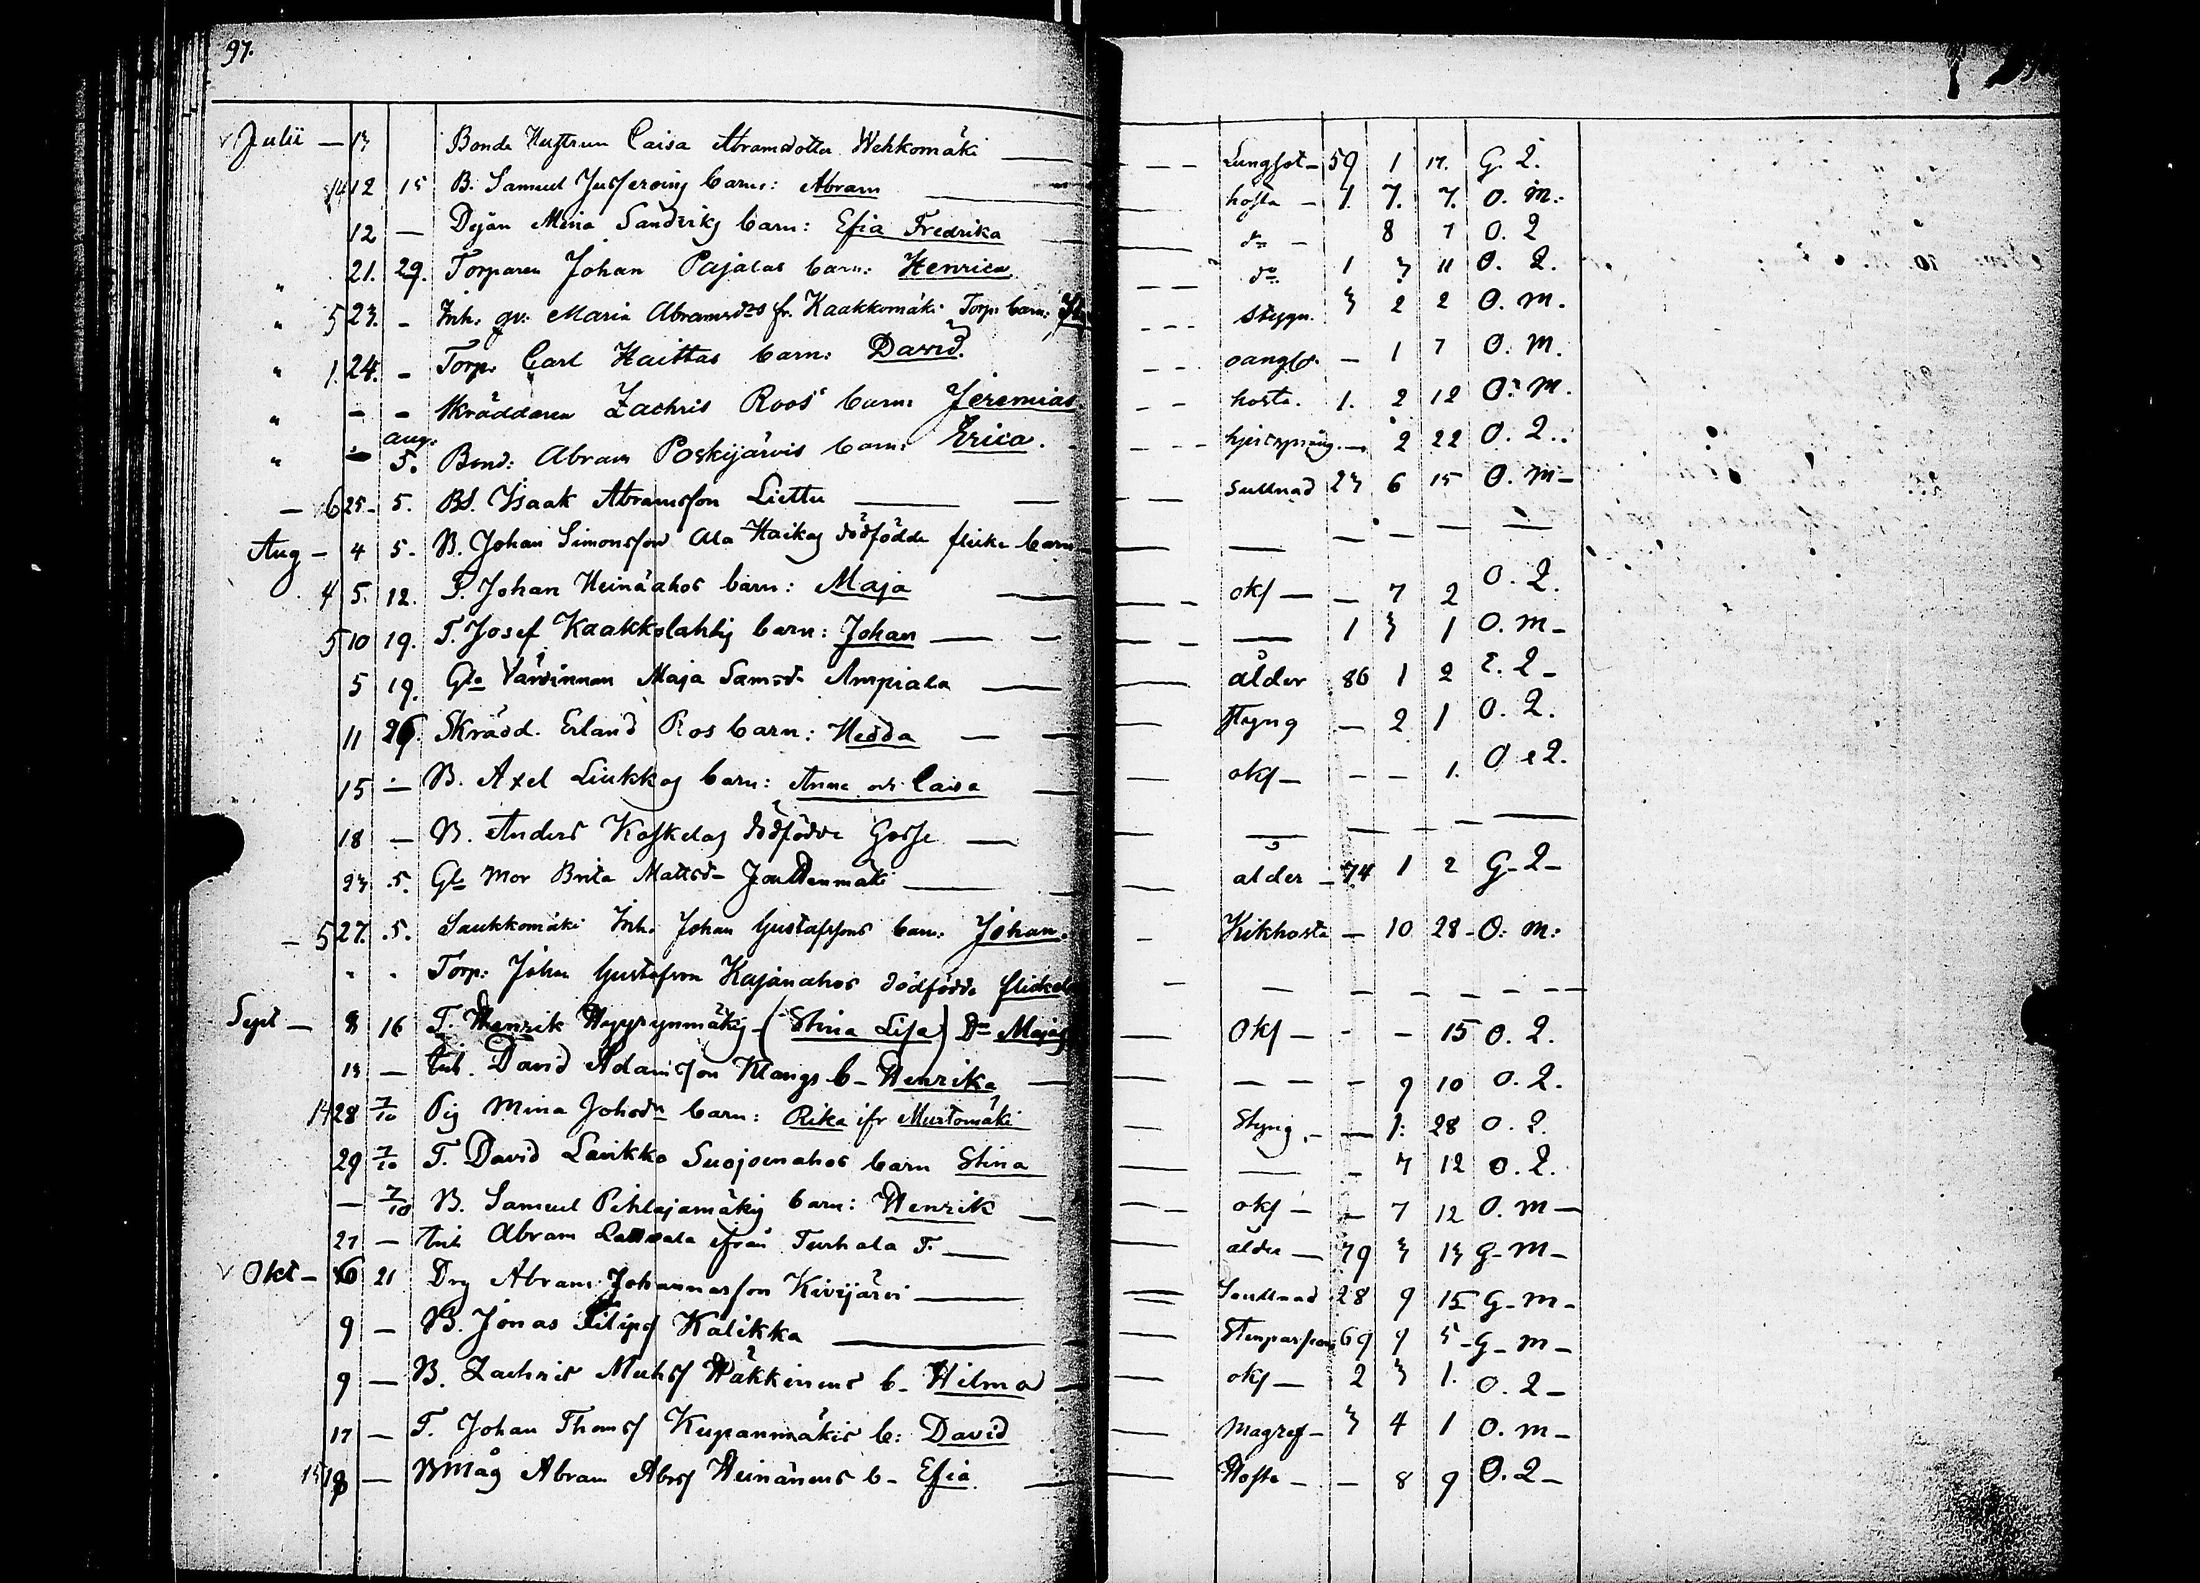 97.
Julii — 13 Bonde Hustrun Caisa Abramsdotter Wehkomäki — Lungsot — 59 1 17. G. Q.
14 12 15 B. Samuel barn: Abram — hosta — 1. 7. 7. O. m.
12 — Dejan Mina Sandviks barn: Efia Fredrika — do — 8 7 O. Q
" 21. 29. Torparen Johan Pajalas barn: Henrica — do 1 3 11 O. Q.
" 5 23. — Inh. qv: Maria fr. Kaakkomäki Torp: barn: — Stygn. 3 2 2 O. m.
" 1. 24. — Torp. Carl Haittas barn: David. — — 1 7 O. M.
" — — Skräddaren Zachris Roos barn: Jeremias — hosta. 1. 2 12 O. M.
" — aug. 5. Bond: Abram Poskijärvis barn: Erica. — — 2 22 O. Q.
— 6 25 — 5. Bs. Isaak Abramsson Liettu — Sullnad 23 6 15 O. m —
Aug — 4 5. B. Johan Simonsson Ala Haikas dödfödde flicke barn — — — — —
4 5. 12. T. Johan Heinäahos barn: Maja — okf — — 7 2 O. Q.
5 10 19. T. Josef Kaakkolahtis barn: Johan — — 1 3 1 O. m —
5 19. Gla Värdinnan Maja Samsd. Ampiala — ålder 86 1 2 E. Q —
11 26. Skrädd. Erland Ros barn: Hedda — Styng — 2 1 O. Q.
15 — B. Axel Liukkos barn: Anna och Caisa — okf — — — 1. O e Q.
18 — B. Anders Koskelas dödfödde Gosse — — — — —
23 .5. Gla Mor Brita Mattsd — — ålder — 74 1 2 G — Q —
— 5 27. .5. Saukkomäki Inh. Johan Gustafssons barn: Johan. — Kikhosta — 10 28 — O: m:
" " Torp: Johan Gustafson Kajanahos dödfödde — — — — — —
Sept — 8 16 T. Henrik — (Stina Lisa) Do Majas Okf — — — 15 O. Q.
13 — Inh. David Adamsson Klangs b — Henrika — — — — 9 10 O. Q.
14 28 7/10 Pig Mina Johsdr barn: Rika ifr Mustomäki — Styng. — — 1: 28 O. Q.
29 7/10 T. David Laukko Suojoenahos barn Stina — — — 7 12 O. Q.
— 7/10 B. Samuel Pihlajamäkis barn: Henrik — okf — — 7 12 O. m —
27 — Inh Abram ifrån Turhala T. — ålder — 79 3 13 G — m —
Okt — 6 21 Drg Abram Johannesson Kivijärvi — 28 9 15 G — m —
9 — B. Jonas Filipsf Kalikka — 69 9 5 — G — m —
9 — B. Zachris Wäkkinens b — Hilma — okf — 2 3 1. O. Q —
17 — T. Johan Thomsf Kupanmäkis b: David Magref — 3 4 1 O. m —
Bmåg Abram Abrsf Heinänens b — Efia — Hosta — — 8 9 O. Q —